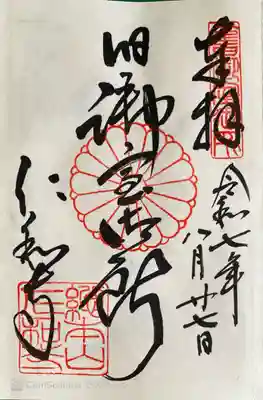 奉拝
令和七年
八月廿七日
旧御室御所
仁和寺